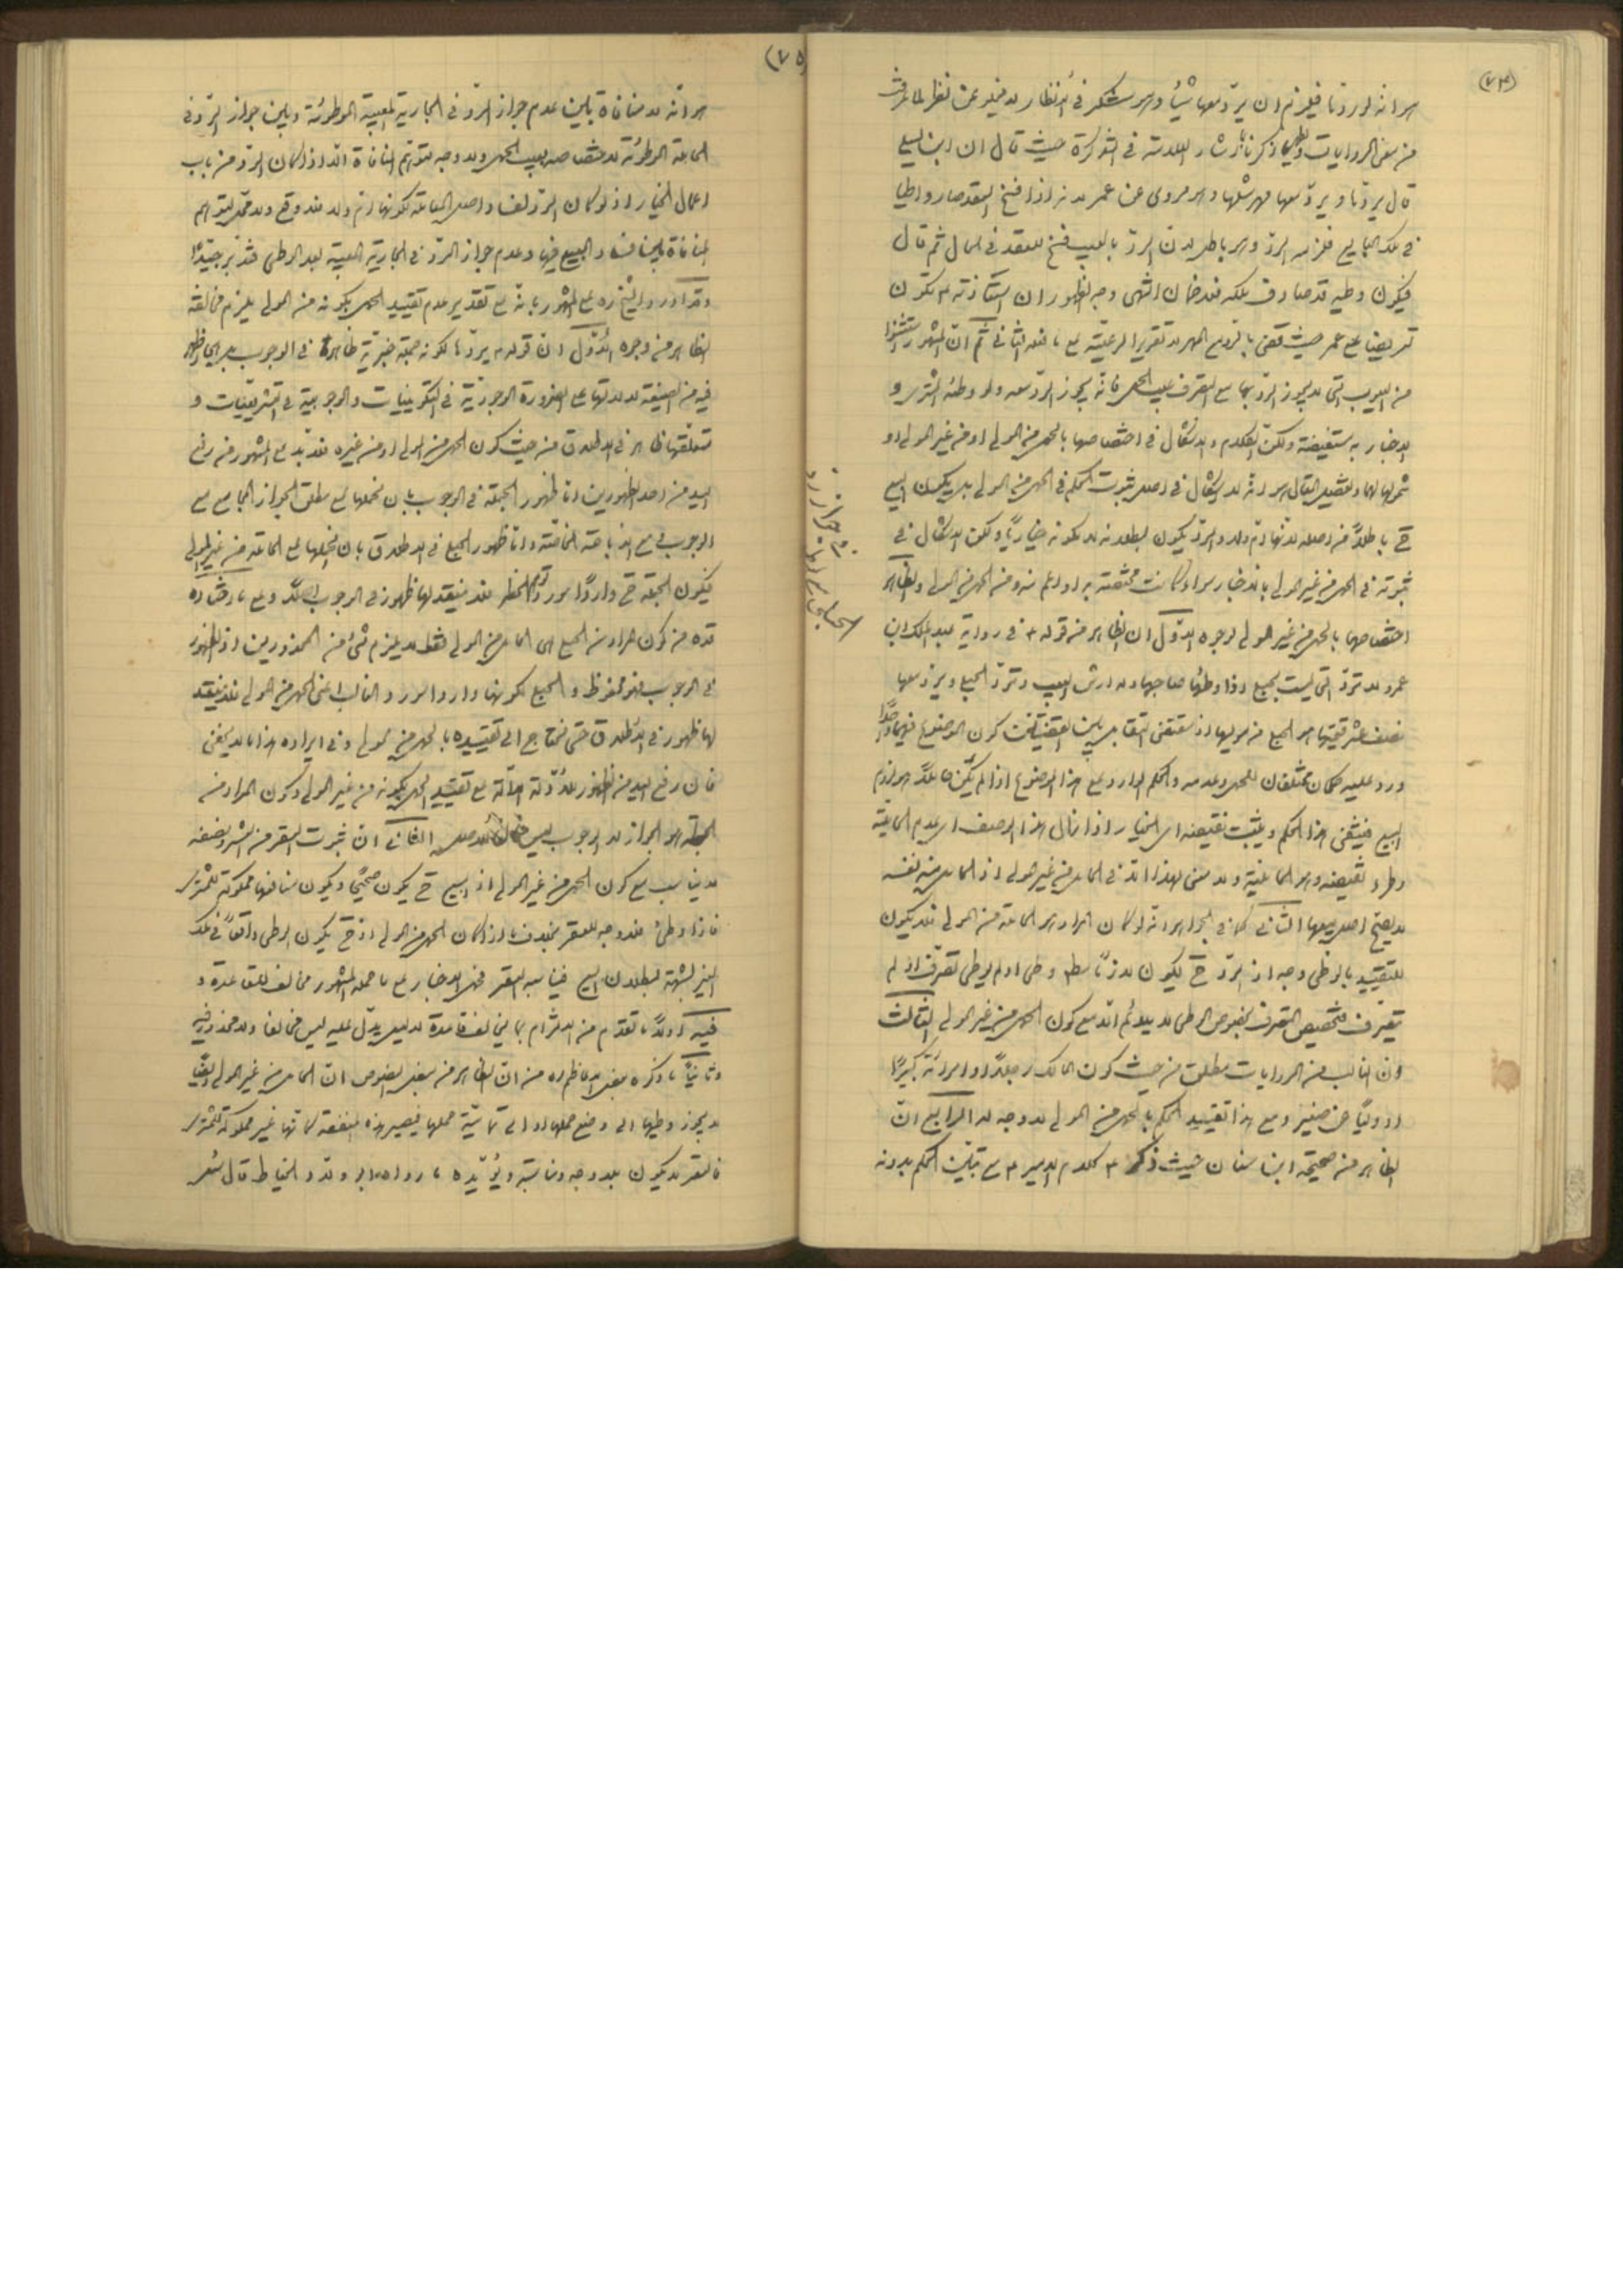 (٧٤)
هو انه لو ردّها فيلزم ان يردّ معها شيئا وهو
من بعض الروايات وكما ذكرنا اشار العلامة في التذكرة حيث قال ان ابن ابي ليلى
قال يردّها ويردّ معها مهر مثلها وهو مروى عن عمر لانه اذا فسخ العقد صار واطيا
في ملك البايع فلزمه الردّ وهو باطل لان الردّ بالعيب فسخ للعقد في الحال ثم قال
فيكون وطيه قد صادف ملكه فلا ضمان انتهى وجه الظهور ان استعاذته ع تكون
تعريضا على عمر حيث قضى بالردّ مع المهر لا تقريرا لرعيّته على ما فعله الثاني ثم ان المشهور استثنوا
من العيوب التي لا يجوز الردّ بها مع التصرف عيب الحمل فانه يجوز الردّ معه ولو وطئه المشترى و
الاخبار به مستفيضة ولكن الكلام والاشكال في اختصاصها بالحمل من المولى او من غير المولى او
شمولها لهما وتفصيل المقال هو انه لا اشكال في اصل ثبوت الحكم في الحمل من المولى بل يكون البيع
ح باطلا من اصله لانها ام ولد والردّ يكون لبطلانه لا لكونه خياريّا ولكن الاشكال في
ثبوته في الحمل من غير المولى بالاخبار سواء كانت مختصة به او اعم منه ومن الحمل من المولى والظاهر
اختصاصها بالحمل من غير المولى لوجوه الاوّل ان الظاهر من قوله ع في رواية عبد الملك ابن
عمرو لا تردّ التي ليست بحبلى اذا وطئها صاحبها وله ارش العيب وتردّ الحبلى ويردّ معها
نصف عشر قيمتها هو الحبلى من موليها اذ مقتضى التقابل بين القضيتين كون الموضوع فيهما واحدا
ورد عليه حكمان مختلفان للحمل وعدمه والحكم الوارد على هذا الموضوع اذا لم يكن حاملا هو لزوم
البيع فينتفى هذا الحكم ويثبت نقيضه اى الخيار اذا زال هذا الوصف اى عدم الحاملية
وطرء نقيضه وهو الحاملية ولا معنى لهذا الّا في الحامل من غير المولى اذ الحامل من نفسه
لا يصح اصل بيعها الثاني كما في الجواهر انه لو كان المراد هو الحاملة من المولى فلا يكون
للتقييد بالوطى وجه اذ الردّ ح يكون لازما سواء وطى او لم يوطى تصرف او لم
يتصرف فتخصيص التصرف بخصوص الوطى لا يلائم الّا مع كون الحمل من غير المولى الثالث
ان الغالب من الروايات مطلق من حيث كون المالك رجلا او امرأة كبيرا
او وليّا عن صغير ومع هذا تقييد الحكم بالحمل من المولى لا وجه له الرابع ان
الظاهر من صحيحة ابن سنان حيث ذكر ع كلام الامير ع مع تبيّن الحكم بدونه
(٧٥)
هو انّه لا منافاة بين عدم جواز الردّ في الجارية المعيبة الموطوئة وبين جواز الردّ في
الحاملة الموطوئة لاختصاصه بعيب الحمل ولا وجه لتوهّم المنافاة الّا اذا كان الردّ من باب
اعمال الخيار اذ لو كان الردّ لفساد اصل المعاملة لكونها ام ولد فلا وقع ولا محل لتوهم
المنافاة بين فساد البيع فيها وعدم جواز الردّ في الجارية المعيبة بعد الوطى فتدبر جيّدا
وقد اورد الشيخ ره على المشهور بانه على تقدير عدم تقييد الحمل بكونه من المولى يلزم مخالفة
الظاهر من وجوه الاوّل ان قوله ع يردّها لكونه جملة خبرية ظاهرة في الوجوب بل هي اظهر
فيه من الصيغة لدلالتها على الضرورة الوجودية في التكوينيات والوجوبية في التشريعيات و
متعلقها ظاهر في الاطلاق من حيث كون الحمل من المولى او من غيره فلا بد على المشهور من رفع
اليد من احد الظهورين اما ظهور الجملة في الوجوب بان نحملها على مطلق الجواز الجامع مع
الوجوب مع الاباحة الخاصّة واما ظهور الحبلى في الاطلاق بان نحملها على الحاملة من غير المولى
فيكون الجملة ح واردا مورد توهّم الحظر فلا ينعقد لها ظهور في الوجوب اصلا وعلى ما افتاده
قده من كون المراد من الحبلى هى الحامل من المولى فقط لا يلزم شئ من المحذورين اذ الظهور
في الوجوب محفوظ والحبلى لكونها واردا مورد الغالب اعنى الحمل من المولى فلا ينعقد
لها ظهور في الاطلاق حتى نحتاج الى تقييده بالحمل من المولى وفي ايراده هذا ما لا يخفى
فان رفع اليد من الظهور للادلة الدالّة على تقييد الحمل بكونه من غير المولى وكون المراد من
الجملة هو الجواز لا الوجوب ليس خلاف الاصل الثاني ان ثبوت العقر من العشر ونصفه
لا يناسب مع كون الحمل من غير المولى اذ البيع ح يكون صحيحا ويكون منافعها مملوكة للمشترى
فاذا وطئ فلا وجه للعقر بخلاف ما اذا كان الحمل من المولى اذ ح يكون الوطى واقعا في ملك
الغير لشبهة لبطلان البيع فيناسبه العقر فحمل الاخبار على ما حمله المشهور مخالف للقاعدة و
فيه اولا ما تقدم من الالتزام بما يخالف قاعدة لدليل يدل عليه ليس مخالفا ولا محذور فيه
وثانيا ما ذكره بعض الاعاظم ره من ان الظاهر من بعض النصوص ان الحامل من غير المولى ايضا
لا يجوز وطيها الى وضع حملها او الى تماميّة حملها فيصير هذه المنفعة كانها غير مملوكة للمشترى
فالعقر لا يكون بلا وجه ومناسبة ويؤيّده ما رواه ابو ولاد الحناط قال سئل